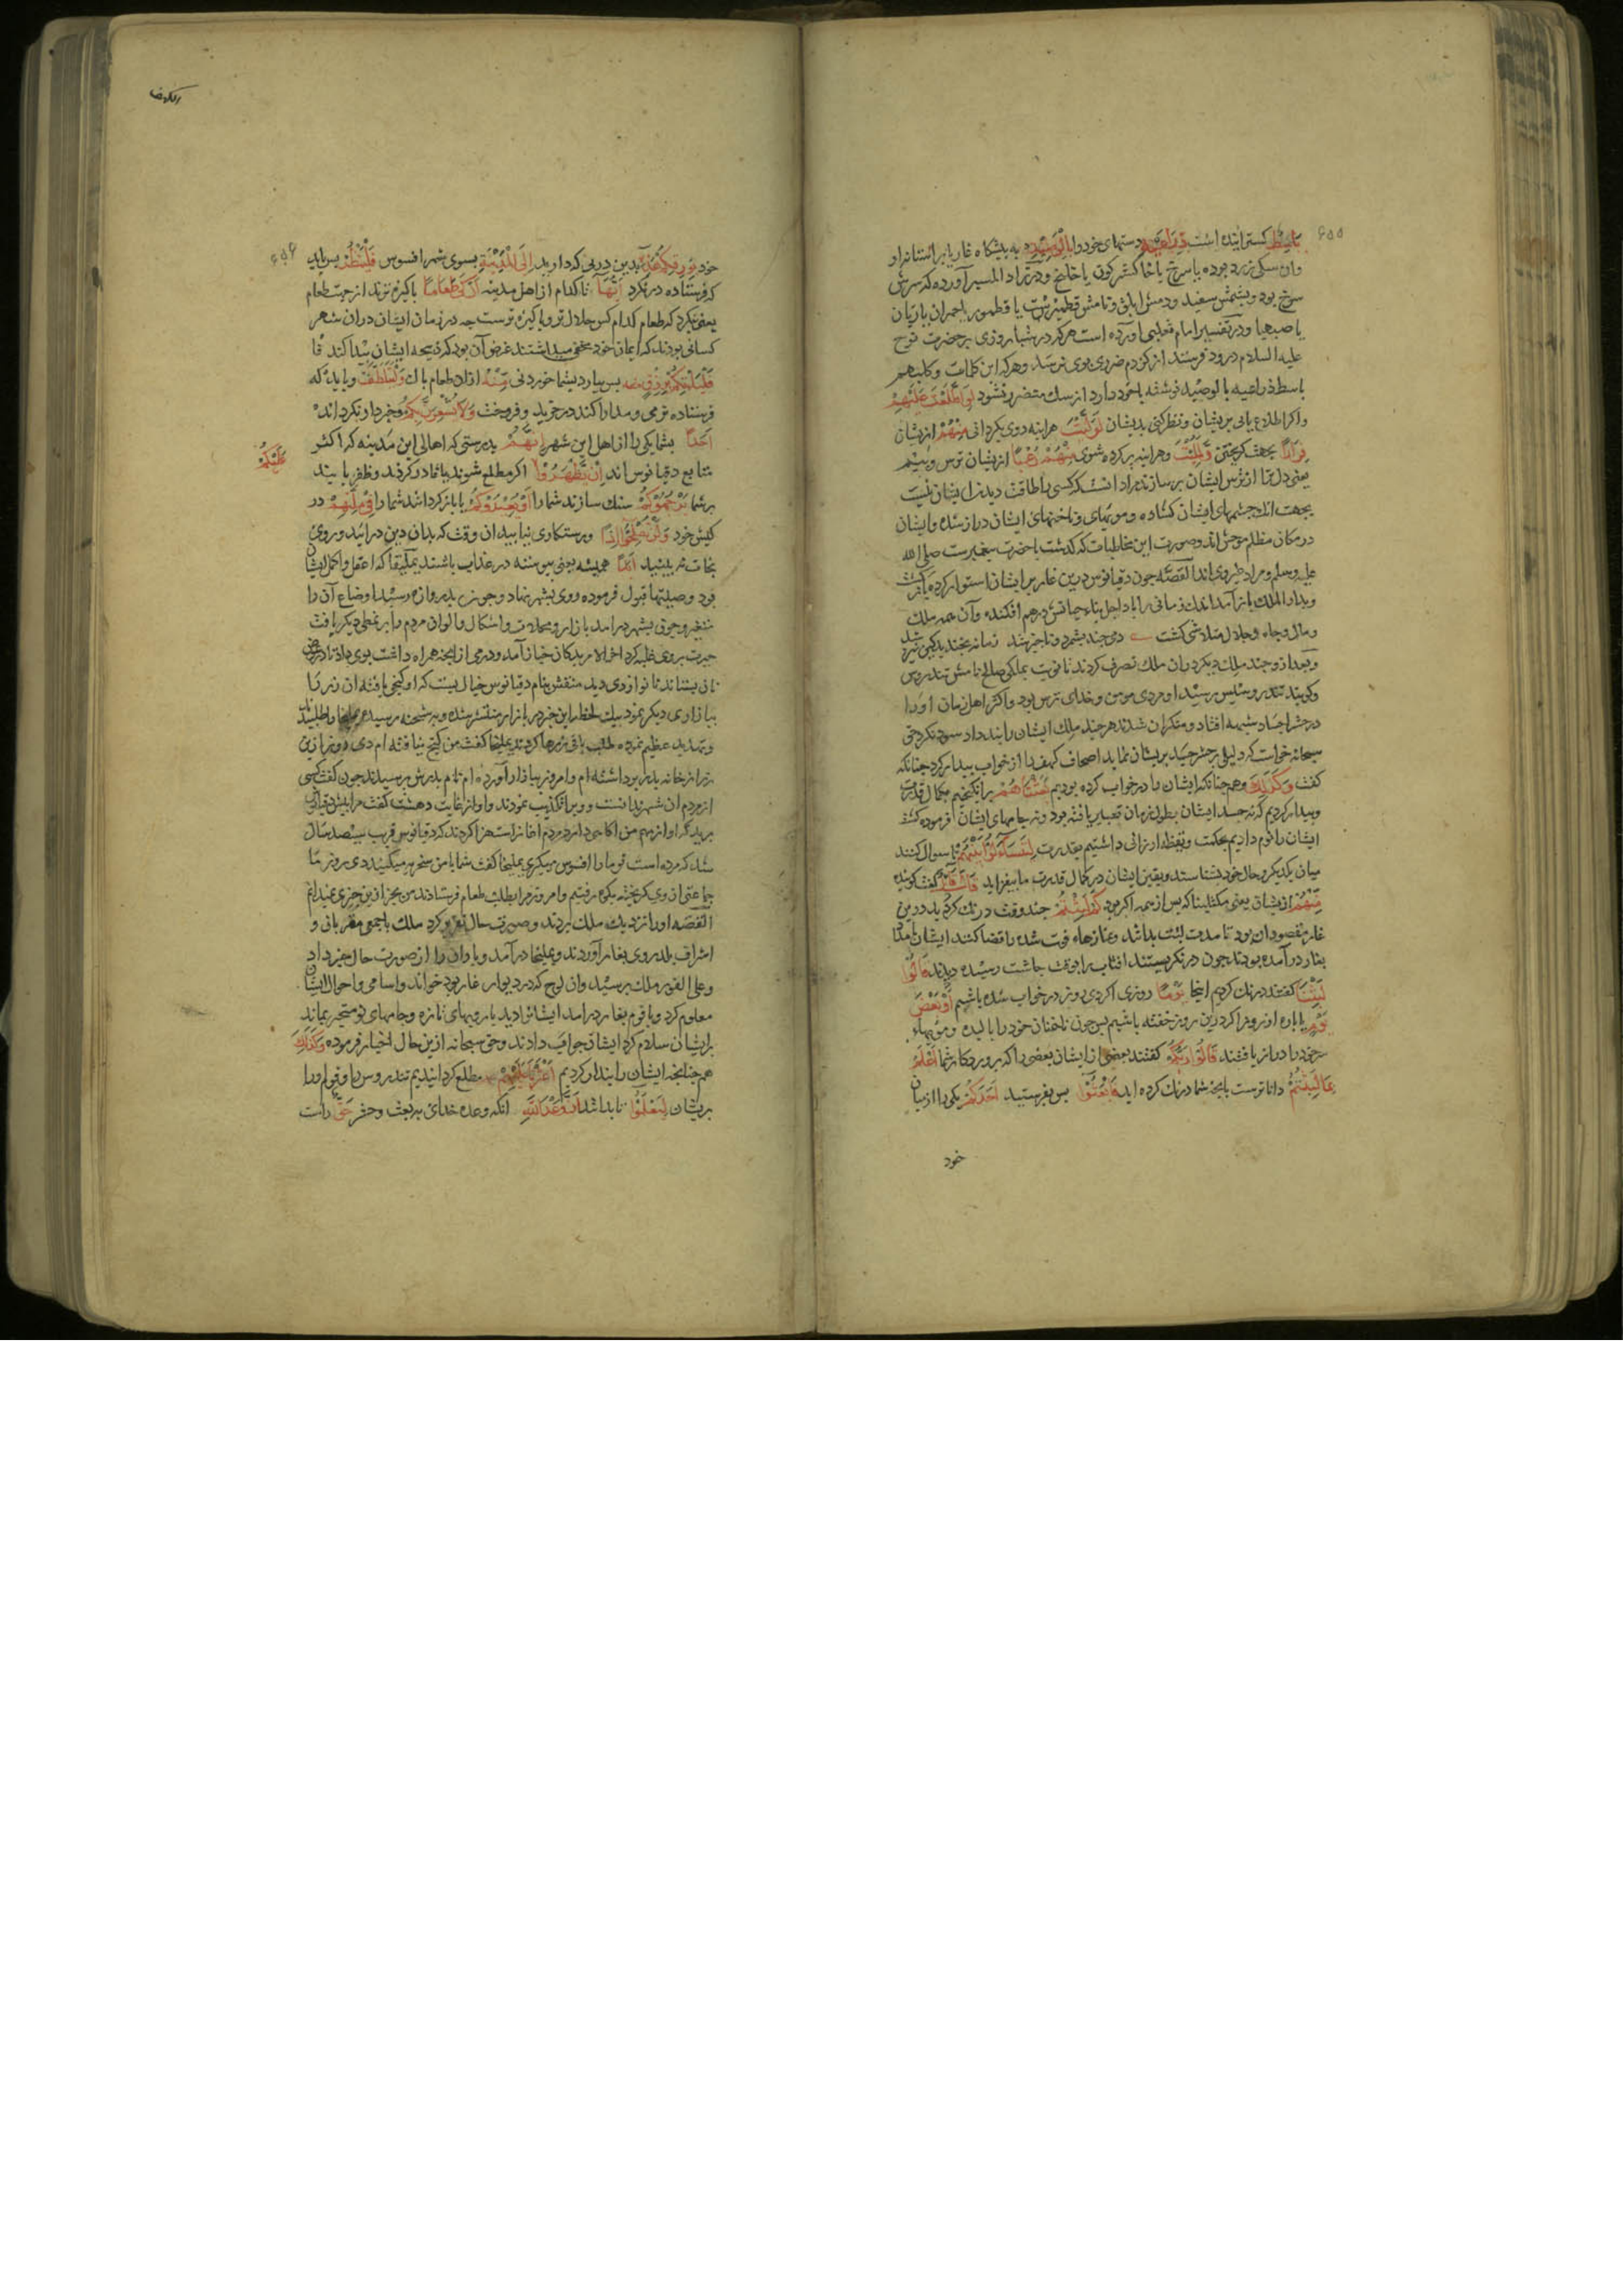 ۶۵۵
باسط کسترانیده است ذراعیه دستهای خود را بالوصید به پیشکاه غار یا بر استانه او
وان سکی زرد بوده یا سرخ یا خاکستر کون یا خلنج ودر زاد المسیر آورده که سرش
سرخ بود وپشتش سفید ودمش ابلق ونامش قطمیر است یا قطمور یا حمران یا ریان
یا صهبا ودر تفسیر امام ثعلبی آورده است هرکه در شبانروزی بر حضرت نوح
علیه السلام درود فرستد از کژدم ضرری بوی نرسد وهرکه این کلمات وکلبهم
باسط ذراعیه بالوصید نوشته باخود دارد از سك متضرر نشود لو اطلعت علیهم
واکر اطلاع یابی بریشان ونظر کنی بدیشان لولیت هراینه روی بکردانی منهم ازیشان
فرارا بجهت کریختن ولملئت وهراینه پر کرده شوی منهم رعبا ازیشان ترس وبیم
یعنی دل ترا از ترس ایشان پر سازند مراد انست که کسی را طاقت دیدن ایشان نیست
بجهت انکه چشمهای ایشان کشاده وموئهای وناخنهای ایشان دراز شده وایشان
در مکان مظلم موحش اند وصورت این مخاطبات که کذشت باحضرت پیغمبرست صلی الله
علیه وسلم ومراد غیر وی اند القصه چون دقیانوس درین غار بر ایشان استوار کرد بازکشت
وبدار الملك باز آمد اندك زمانی را باد اجل بناء حیاتش در هم افکنده وآن همه ملك
ومال وجاه وجلال متلاشی کشت دمی چند بشمرد وناچیز شد زمانه بخندید کین نیز شد
وبعد ازو چند ملك دیکر دران ملك تصرف کردند تا نوبت بملکی صالح نامش تندروس
وکویند تندروسیس رسید او مردی مومن وخدای ترس بود واکثر اهل زمان او را
در حشر اجساد شبهه افتاد ومنکران شدند هرچند ملك ایشان را پند داد سود نکرد حق
سبحانه خواست که دلیلی بر حشر جسد بریشان نماید اصحاف کهف را از خواب بیدار کرد چنانکه
کفت وکذلك وهم چنانکه ایشان را در خواب کرده بودیم بعثناهم برانکیختیم بکمال قدرت
وبیدار کردیم که نه جسد ایشان بطول زمان تغییر یافته بود ونه جامهای ایشان
ایشان را نوم دادیم بحکمت ویقظه ارزانی داشتیم بقدرت لیتساءلوا بینهم تا سوال کنند
میان یکدیکر وحال خود بشناسند ویقین ایشان در کمال قدرت ما بیفزاید قال قائل کفت کوینده
منهم ازیشان یعنی مکثلمینا که پس از همه اکبر بود کم لبثتم چند وقت درنك کردید درین
غار مقصود ان بود تا مدت لبث بدانند ونمازهاء فوت شده را قضا کنند ایشان بامداد
بغار درآمده بودند چون درنکریستند افتاب را بوقت چاشت رسیده دیدند قالوا
لبثنا کفتند درنك کردیم اینجا یوما روزی اکر دی روز در خواب شده باشیم او بعض
یوم یا پاره از روز اکر درین روز خفته باشیم پس چون ناخنان خود را بالیده ومویهاء
سر خود را دراز یافتند قالوا ربکم کفتند بعضی از ایشان بعضی را که پروردکار شما اعلم
بما لبثتم داناترست بانچه شما درنك کرده اید فابعثوا پس بفرستید احدکم یکی را از میان
خود
الکهف
۶۵۶
خود بورقکم هذه بدین درمی که دارید الی المدینة بسوی شهر افسوس فلینظر پس باید
که فرستاده درنکرد ایها تا کدام از اهل مدینه ازکی طعاما پاکیزه ترند از جهت طعام
یعنی بنکرد که طعام کدام کس حلال تر وپاکیزه ترست چه در زمان ایشان دران شهر
کسانی بودند که ایمان خود مخفی میداشتند غرض آن بود که ذبیحه ایشان پیدا کند
فلیاتکم برزق منه پس بیارد بشما خوردنی منه ازان طعام پاك ولیتلطف وباید که
فرستاده نرمی ومدارا کند در خرید وفروخت ولا یشعرن بکم وخبردار نکرداند
احدا بشما یکی را از اهل این شهر انهم بدرستی که اهالی این مدینه که اکثر
متابع دقیانوس اند ان یظهروا اکر مطلع شوند یا غماد وکردند وظفر یابند
علیکم
بر شما یرجموکم سنك سازند شما را او یعیدوکم یا بازکردانند شما را فی ملتهم در
کیش خود ولن تفلحوا اذا ورستکاری نیابید ان وقت که بدان دین درائید وروی
نجات نه بینید ابدا همیشه یعنی پیوسته در عذاب باشند یملیخا که اعقل واکمل ایشان
بود وصیتها قبول فرموده روی بشهر نهاد وچون بدروازه رسید اوضاع آن را
متغیر وچون بشهر درامد بازار ومحلات واشکال والوان مردم را بر نمطی دیکر یافت
حیرت بروی غلبه کرد اخر الامر بدکان خباز آمد ودرمی از انچه همراه داشت بوی داد تا در عوض
نان بستاند نانوا زری دید منقش بنام دقیانوس خیال بست که او کنجی یافته ان زر را
ببازاری دیکر نمود بیك لحظه این خبر در بازار منتشر شده وبه شحنه رسیده یملیخا را طلبیدند
وتهدید عظیم نموده طلب باقی زرها کردند یملیخا کفت من کنج نیافته ام دی روز این
زر از خانه پدر برداشته ام وامروز ببازار آورده ام نام پدرش پرسیدند چون کفت کسی
از مردم ان شهر ندانست وویرا تکذیب نمودند واو از غایت دهشت کفت مرا پیش دقیانوس
برید که او از مهم من اکاهی دارد مردم اغاز استهزا کردند که دقیانوس قریب سیصد سال
شد که مرده است تو ما را افسوس میکری یملیخا کفت شما با من سخریه میکنید دی روز ما
جماعتی از وی کریخته بکوه رفتیم وامروز مرا بطلب طعام فرستادند من بجز ازین چیزی نمیدانم
القصه او را نزدیك ملك بردند وصورت حال تقریر کرد ملك باجمعی مقربانی و
اشراف بلد روی بغار آوردند ویملیخا درآمد ویاران را از صورت حال خبر داد
وعلی الفور ملك برسید وان لوح که در دیوار غار بود خواند واسامی واحوال ایشان
معلوم کرد وباقوم بغار درامد ایشان را دید با رویهای تازه وجامهای نو متحیر بماند
بر ایشان سلام کرد ایشان جواب دادند وحق سبحانه ازین حال اخبار فرموده وکذلك
هم چنانچه ایشان را بیدار کردیم اعثرنا علیهم مطلع کردانیدیم تندروس را وقوم او را
بریشان لیعلموا تا بدانند ان وعد الله انکه وعده خدای به بعث وحشر حق راست